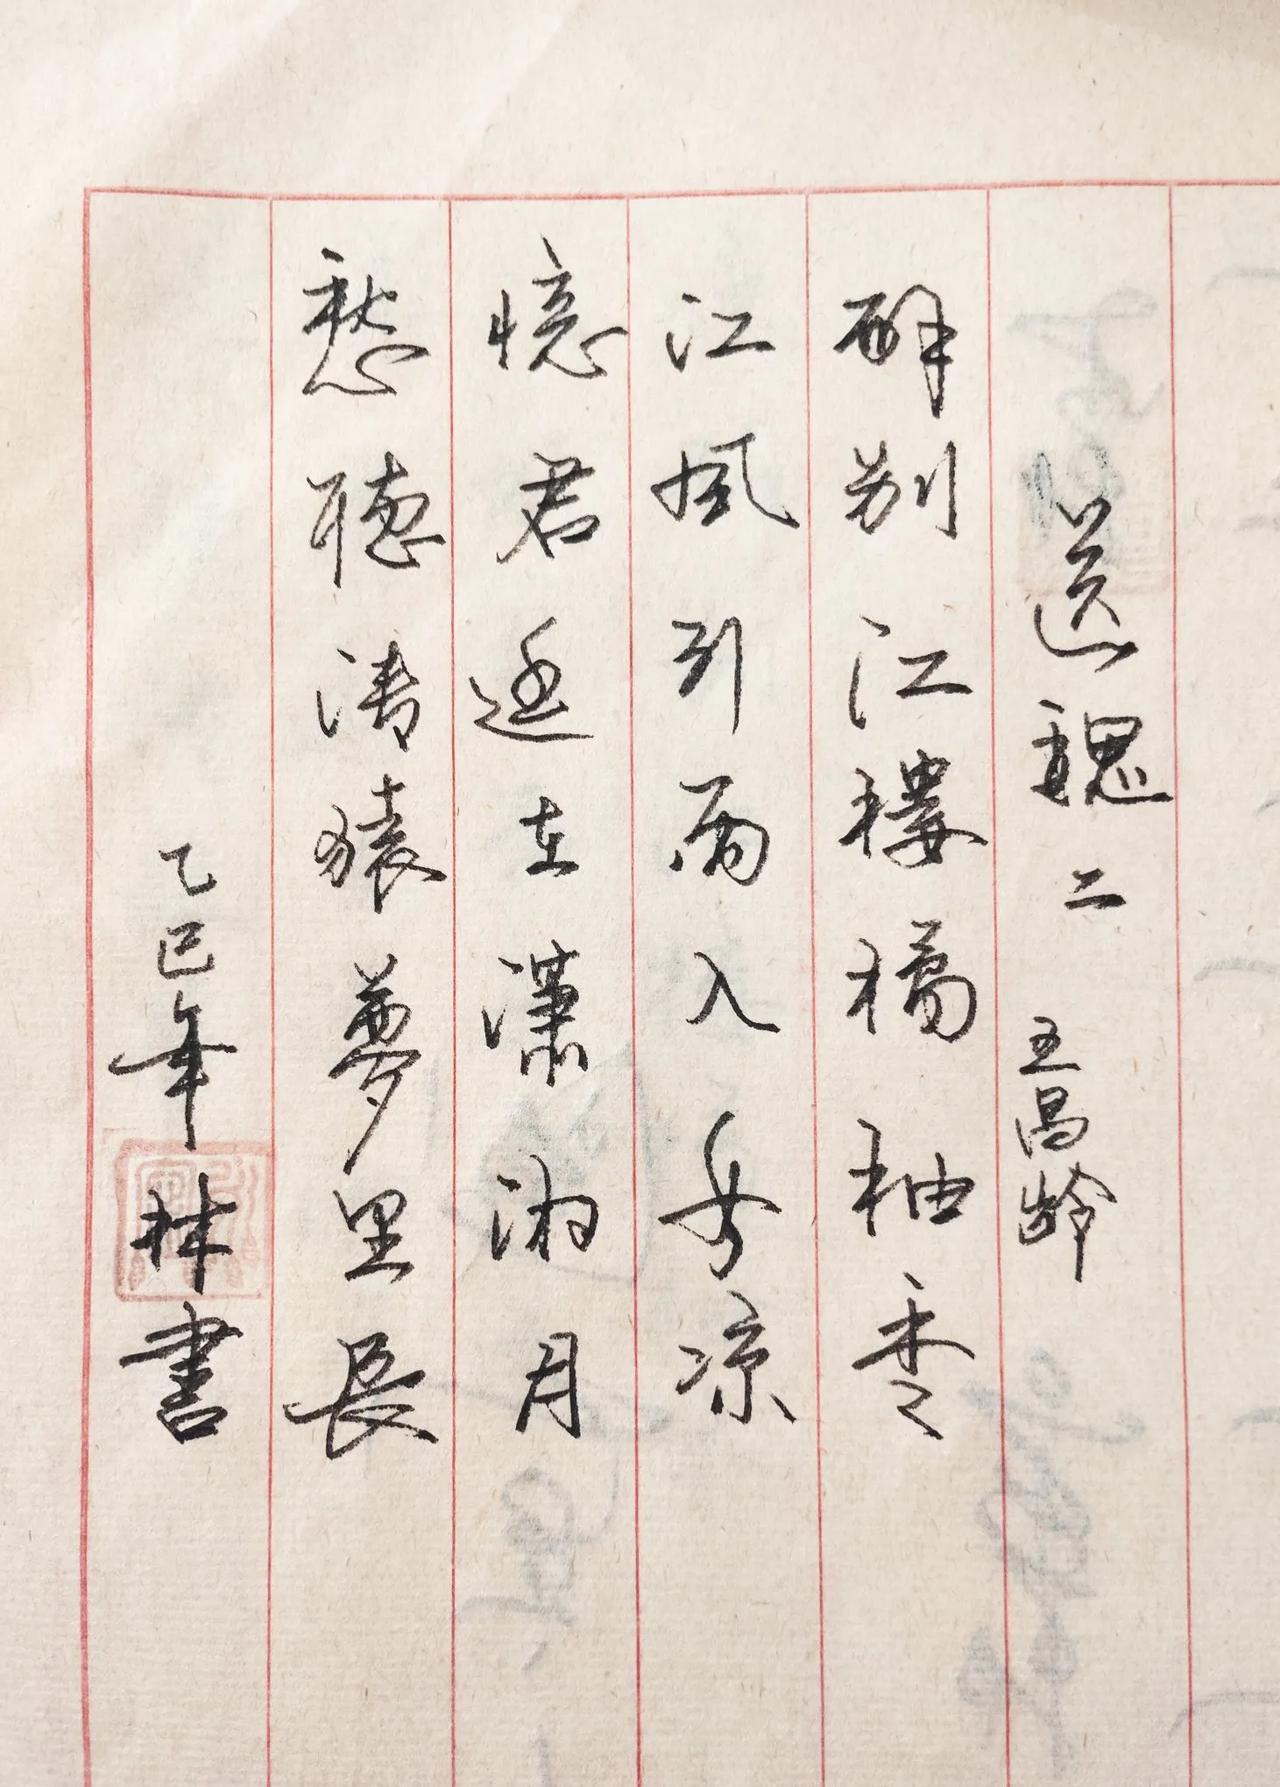 送魏二 王昌龄
醉别江樓橘柚香
江風引雨入舟凉
憶君遥在瀟湘月
愁聽清猿夢里長
乙巳年林書